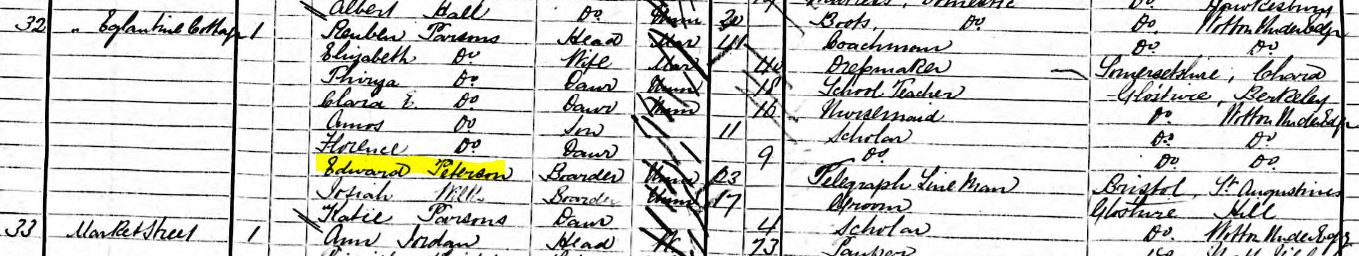 Albert Hall Do Unm 20 Boots, Do. Do.
32 " Eglantine Cottage 1 Reuben Parsons Head Mar 41 Coachman Do Wotton Under Edge
Elizabeth Do Wife Mar 40 Dressmaker Somersetshire, Chard
Thirza Do Daur Unm 18 School Teacher Glosture, Berkeley
Clara E. Do Daur Unm 16 Nursemaid Do Wotton Under Edge
Amos Do Son 11 Scholar Do Do
Florence Do Daur 9 Do Do Do
Edward Peterson Boarder Unm 23 Telegraph Line Man Bristol, St Augustines
Josiah Boarder Unm 17 Groom Glosture Hill
Katie Parsons Daur 4 Scholar Do Wotton Under Edge
33 Market Street 1 Ann Jordan Head W. 73 Pauper Do